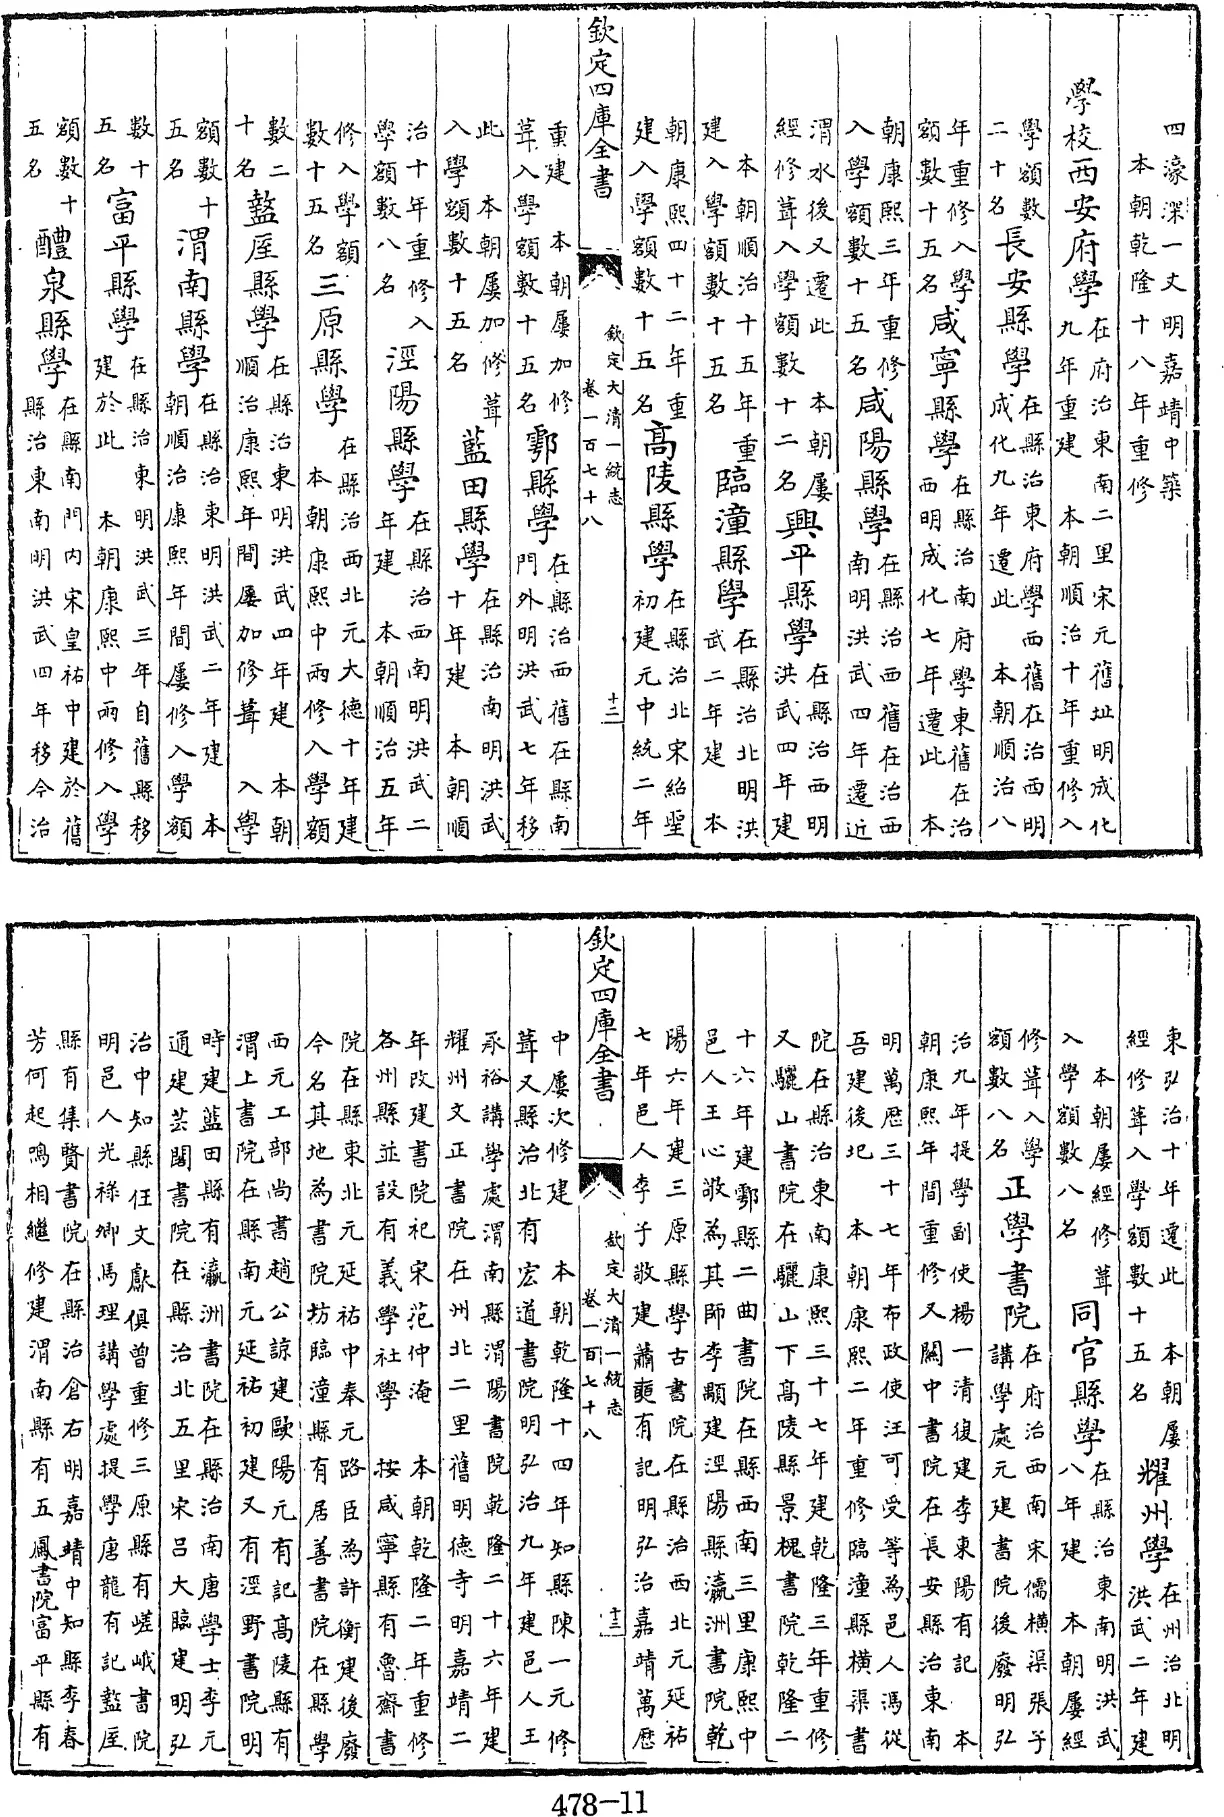 四濠深一丈明嘉靖中築
本朝乾隆十八年重修
學校西安府學
在府治東南二里宋元舊址明成化
九年重建　本朝順治十年重修入
學額數
二十名
長安縣學
在縣治東府學西舊在治西明
成化九年遷此　本朝順治八
年重修入學
額數十五名
咸寧縣學
在縣治南府學東舊在治
西明成化七年遷此　本
朝康熙三年重修
入學額數十五名
咸陽縣學
在縣治西舊在治西
南明洪武四年遷近
渭水後又遷此　本朝屢
經修葺入學額數十二名
興平縣學
在縣治西明
洪武四年建
本朝順治十五年重
建入學額數十五名
臨潼縣學
在縣治北明洪
武二年建　本
朝康熙四十二年重
建入學額數十五名
高陵縣學
在縣治北宋紹聖
初建元中統二年
欽定四庫全書
欽定大清一統志
卷一百七十八
十二
重建　本朝屢加修
葺入學額數十五名
鄠縣學
在縣治西舊在縣南
門外明洪武七年移
此　本朝屢加修葺
入學額數十五名
藍田縣學
在縣治南明洪武
十年建　本朝順
治十年重修入
學額數八名
涇陽縣學
在縣治西南明洪武二
年建　本朝順治五年
修入學額
數十五名
三原縣學
在縣治西北元大德十年建
本朝康熙中兩修入學額
數二
十名
盩厔縣學
在縣治東明洪武四年建　本朝
順治康熙年間屢加修葺　入學
額數十
五名
渭南縣學
在縣治東明洪武二年建　本
朝順治康熙年間屢修入學額
數十
五名
富平縣學
在縣治東明洪武三年自舊縣移
建於此　本朝康熙中兩修入學
額數十
五名
醴泉縣學
在縣南門内宋皇祐中建於舊
縣治東南明洪武四年移今治
東弘治十年遷此　本朝屢
經修葺入學額數十五名
耀州學
在州治北明
洪武二年建
本朝屢經修葺
入學額數八名
同官縣學
在縣治東南明洪武
八年建　本朝屢經
修葺入學
額數八名
正學書院
在府治西南宋儒橫渠張子
講學處元建書院後廢明弘
治九年提學副使楊一清復建李東陽有記　本
朝康熙年間重修又關中書院在長安縣治東南
明萬歷三十七年布政使汪可受等為邑人馮從
吾建後圮　本朝康熙二年重修臨潼縣橫渠書
院在縣治東南康熙三十七年建乾隆三年重修
又驪山書院在驪山下高陵縣景槐書院乾隆二
十六年建鄠縣二曲書院在縣西南三里康熙中
邑人王心敬為其師李顒建涇陽縣瀛洲書院乾
陽六年建三原縣學古書院在縣治西北元延祐
七年邑人李子敬建蕭𣂏有記明弘治嘉靖萬歷
欽定四庫全書
欽定大清一統志
卷一百七十八
十三
中屢次修建　本朝乾隆十四年知縣陳一元修
葺又縣治北有宏道書院明弘治九年建邑人王
承裕講學處渭南縣渭陽書院乾隆二十六年建
耀州文正書院在州北二里舊明德寺明嘉靖二
年改建書院祀宋范仲淹　本朝乾隆二年重修
各州縣並設有義學社學　按咸寧縣有魯齋書
院在縣東北元延祐中奉元路臣為許衡建後廢
今名其地為書院坊臨潼縣有居善書院在縣學
西元工部尚書趙公諒建歐陽元有記高陵縣有
渭上書院在縣南元延祐初建又有涇野書院明
時建藍田縣有瀛洲書院在縣治南唐學士李元
通建芸閣書院在縣治北五里宋呂大臨建明弘
治中知縣任文獻俱曾重修三原縣有嵯峨書院
明邑人光祿卿馬理講學處提學唐龍有記盩厔
縣有集賢書院在縣治倉右明嘉靖中知縣李春
芳何起鳴相繼修建渭南縣有五鳳書院富平縣有
478-11